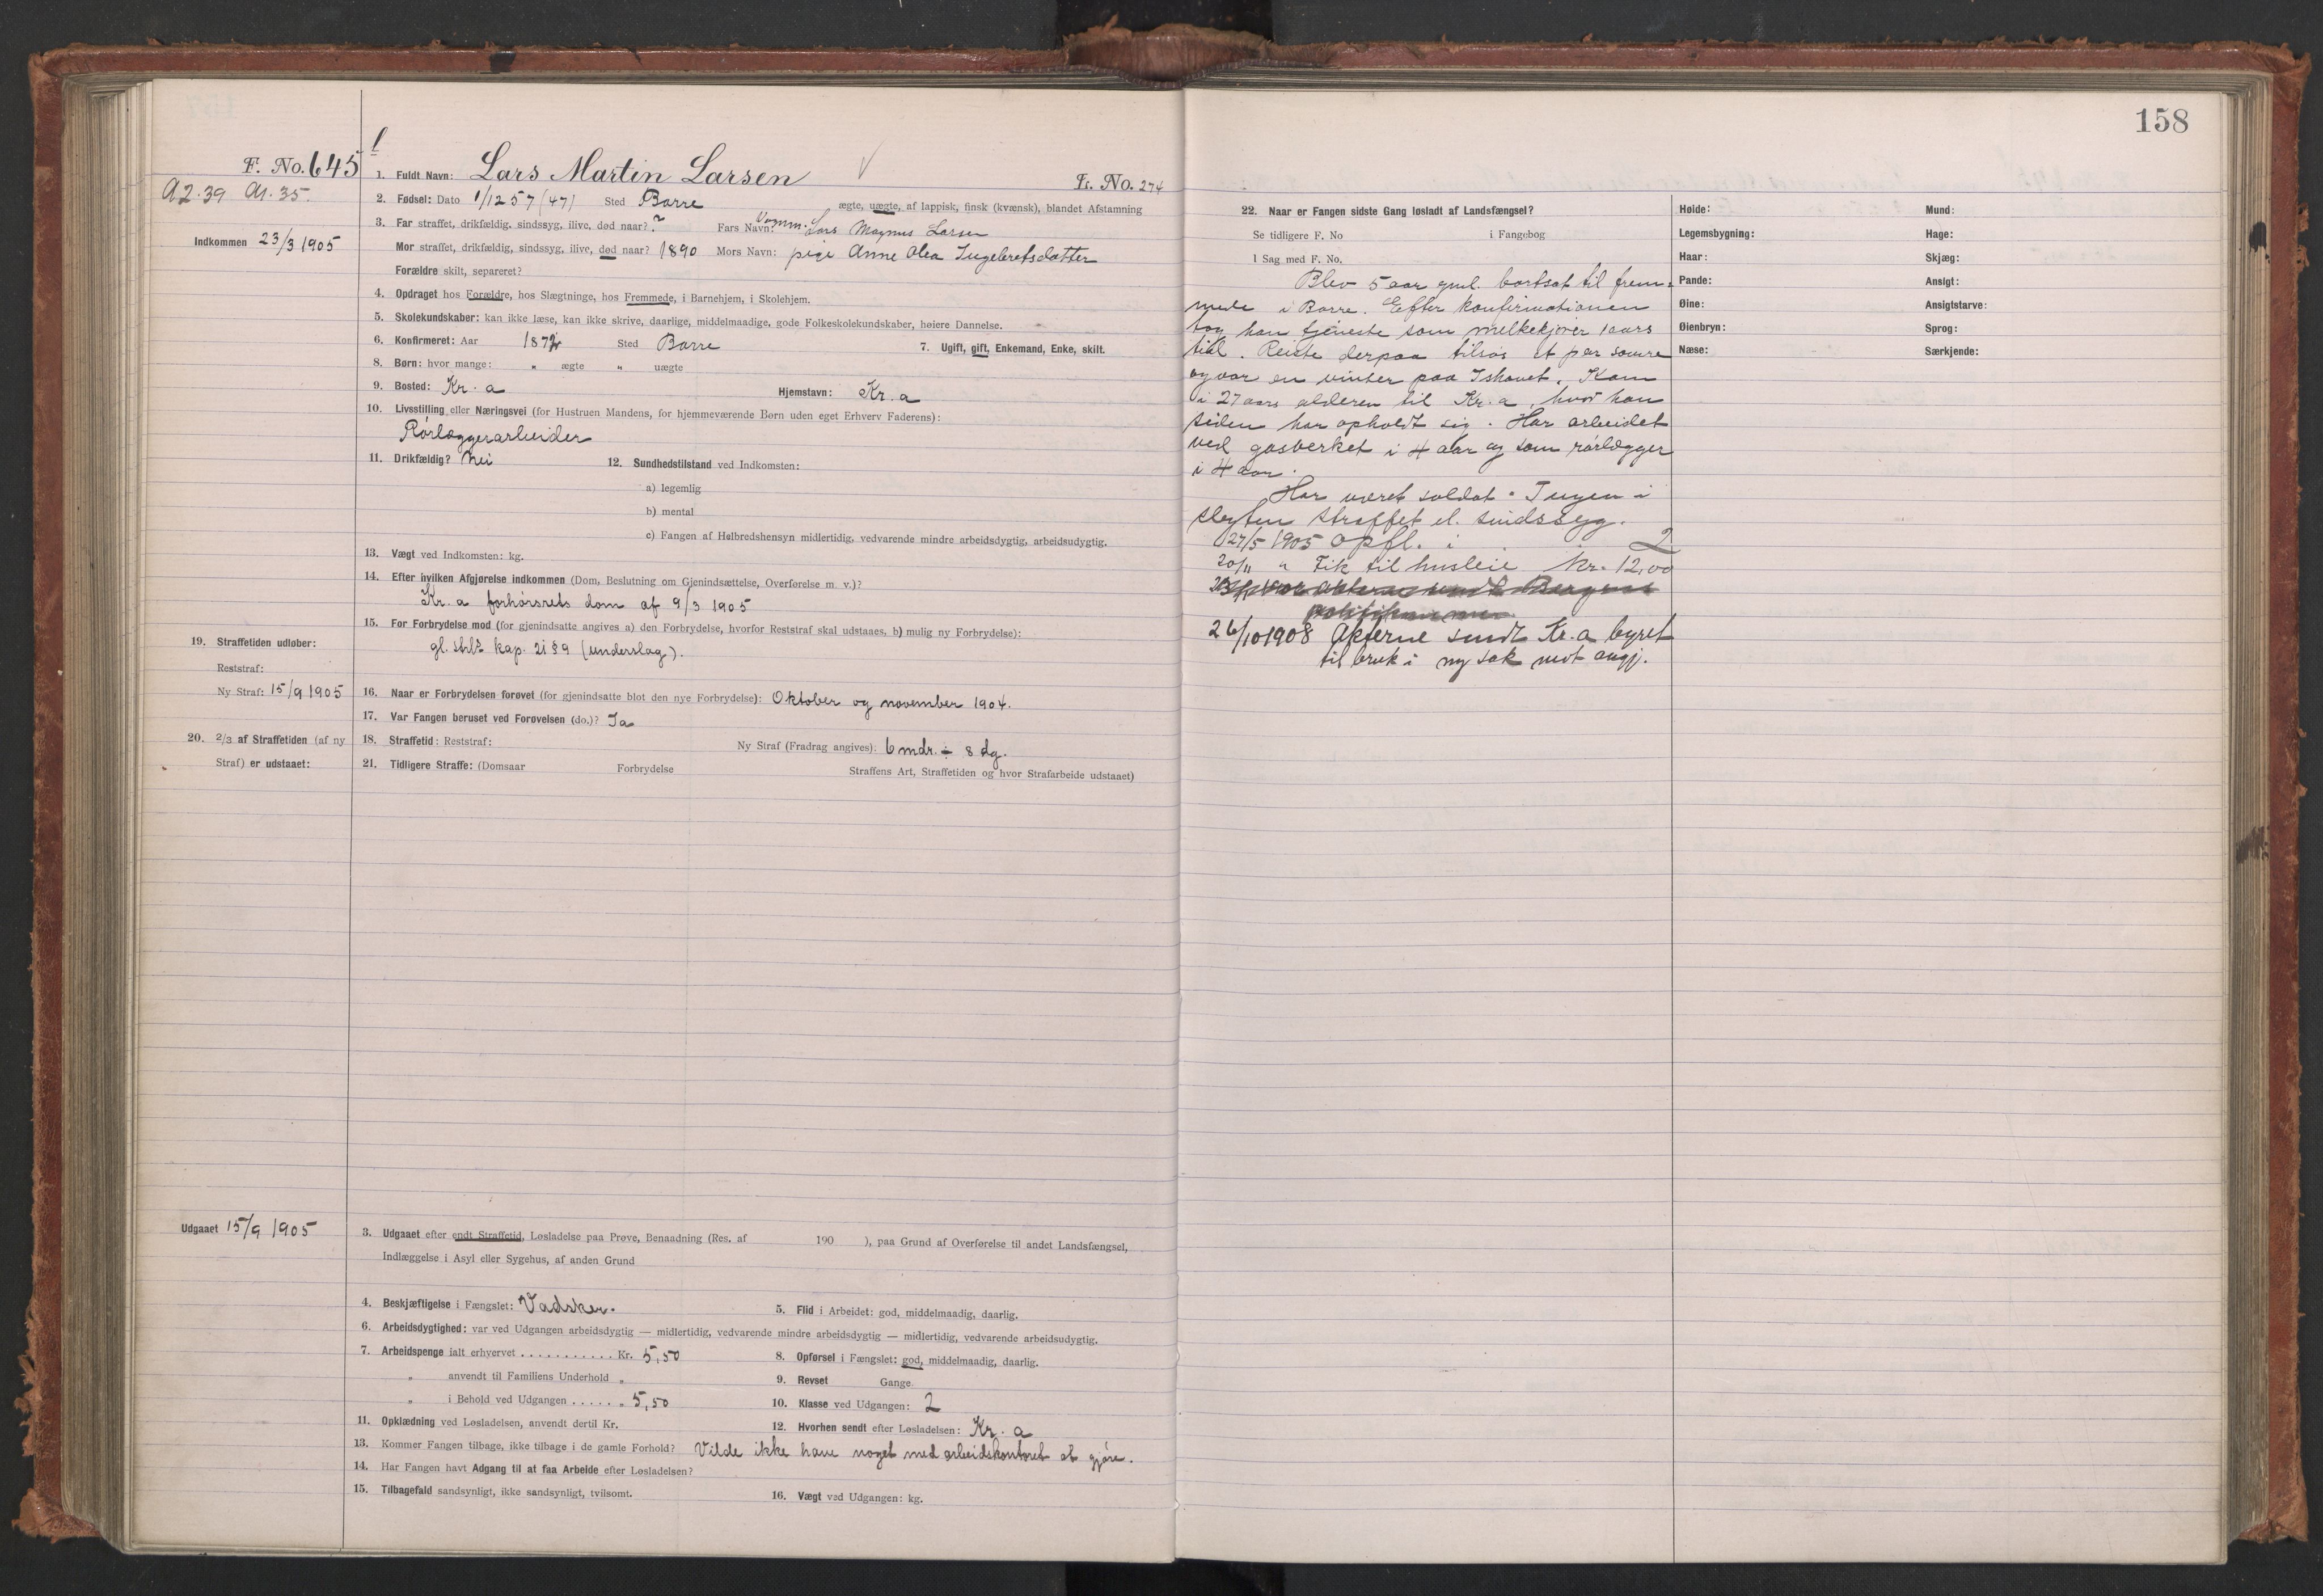 158
F. No. 645
A2.39 A1.35.
Indkommen 23/3 1905
1. Fuldt Navn: Lars Martin Larsen
L. No. 274
2. Fødsel: Dato 1/12 57 (47) Sted Borre ægte, uægte, af lappisk, finsk (kvænsk), blandet Afstamning
3. Far straffet, drikfældig, sindssyg, ilive, død naar? ? Fars Navn: Lars Magnus Larsen
Mor straffet, drikfældig, sindssyg, ilive, død naar? 1890 Mors Navn: pige Anne Olea Ingebretsdatter
Forældre skilt, separeret?
4. Opdraget hos Forældre, hos Slægtninge, hos Fremmede, i Barnehjem, i Skolehjem.
5. Skolekundskaber: kan ikke læse, kan ikke skrive, daarlige, middelmaadige, gode Folkeskolekundskaber, høiere Dannelse.
6. Konfirmeret: Aar Sted Borre 7. Ugift, gift, Enkemand, Enke, skilt.
8. Børn: hvor mange: " ægte " uægte
9. Bosted: Kr.a Hjemstavn: Kr.a
10. Livsstilling eller Næringsvei (for Hustruen Mandens, for hjemmeværende Børn uden eget Erhverv Faderens):
Rørlæggerarbeider
11. Drikfældig? Nei 12. Sundhedstilstand ved Indkomsten:
a) legemlig
b) mental
c) Fangen af Helbredshensyn midlertidig, vedvarende mindre arbeidsdygtig, arbeidsudygtig.
13. Vægt ved Indkomsten: kg.
14. Efter hvilken Afgjørelse indkommen (Dom, Beslutning om Gjenindsættelse, Overførelse m. v.)?
Kr.a forhørsrets dom af 9/3 1905
15. For Forbrydelse mod (for gjenindsatte angives a) den Forbrydelse, hvorfor Reststraf skal udstaaes, b) mulig ny Forbrydelse):
gl. strl. kap. 21 § 9 (underslag).
19. Straffetiden udløber:
Reststraf:
Ny Straf: 15/9 1905
16. Naar er Forbrydelsen forøvet (for gjenindsatte blot den nye Forbrydelse): Oktober og november 1904.
17. Var Fangen beruset ved Forøvelsen (do.)? Ja
20. 2/3 af Straffetiden (af ny
Straf) er udstaaet:
18. Straffetid: Reststraf: Ny Straf (Fradrag angives): 6 mdr. ÷ 8 dg.
21. Tidligere Straffe: (Domsaar Forbrydelse Straffens Art, Straffetiden og hvor Strafarbeide udstaaet)
Udgaaet 15/9 1905
3. Udgaaet efter endt Straffetid, Løsladelse paa Prøve, Benaadning (Res. af 190 ), paa Grund af Overførelse til andet Landsfængsel,
Indlæggelse i Asyl eller Sygehus, af anden Grund
4. Beskjæftigelse i Fængslet: Vadsker. 5. Flid i Arbeidet: god, middelmaadig, daarlig.
6. Arbeidsdygtighed: var ved Udgangen arbeidsdygtig — midlertidig, vedvarende mindre arbeidsdygtig — midlertidig, vedvarende arbeidsudygtig.
7. Arbeidspenge ialt erhvervet ........... Kr. 5,50 8. Opførsel i Fængslet: god, middelmaadig, daarlig.
" anvendt til Familiens Underhold " 9. Revset Gange.
" i Behold ved Udgangen ..... " 5,50 10. Klasse ved Udgangen: 2
11. Opklædning ved Løsladelsen, anvendt dertil Kr. 12. Hvorhen sendt efter Løsladelsen: Kr.a
13. Kommer Fangen tilbage, ikke tilbage i de gamle Forhold? Vilde ikke have noget med arbeidskontoret at gjøre.
14. Har Fangen havt Adgang til at faa Arbeide efter Løsladelsen?
15. Tilbagefald sandsynligt, ikke sandsynligt, tvilsomt. 16. Vægt ved Udgangen: kg.
22. Naar er Fangen sidste Gang løsladt af Landsfængsel?
Se tidligere F. No i Fangebog
I Sag med F. No.
Blev 5 aar gml. bortsat til frem-
mede i Borre. Efter konfirmationen
tog han tjeneste som melkekjører 1 aars
tid. Reiste derpaa tilsøs et par somre
og var en vinter paa Ishavet. Kom
i 27 aars alderen til Kr.a, hvor han
siden har opholdt sig. Har arbeidet
ved gasverket i 4 aar og som rørlægger
i 4 aar.
Har været soldat. Ingen i
slegten straffet el. sindssyg.
27/5 1905 opfl. i 2
20/11 " Fik til husleie Kr. 12,00
26/10 1908 Akterne sendt Kr.a byret
til bruk i ny sak mot angj.
Høide: Mund:
Legemsbygning: Hage:
Haar: Skjæg:
Pande: Ansigt:
Øine: Ansigtsfarve:
Øienbryn: Sprog:
Næse: Særkjende: